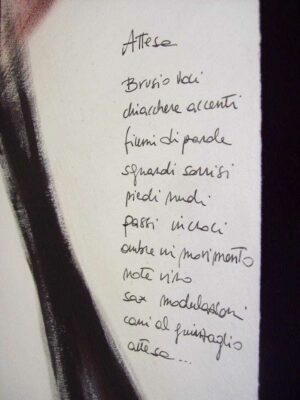 Attesa
Brusio voci
chiacchere accenti
fiumi di parole
sguardi sorrisi
piedi nudi
passi incroci
ombre in movimento
note vino
sax modulazioni
cani al guinzaglio
attesa...